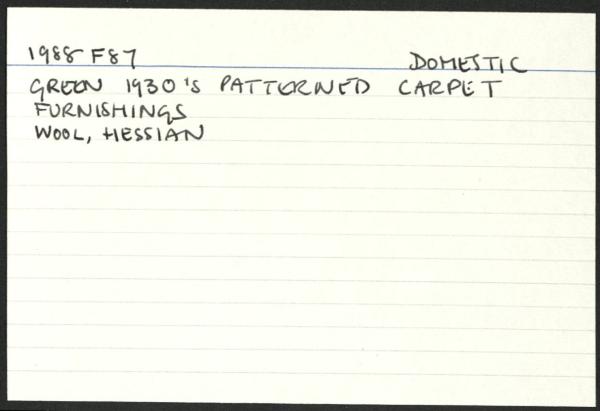 1988 F87 DOMESTIC
GREEN 1930's PATTERNED CARPET
FURNISHINGS
WOOL, HESSIAN